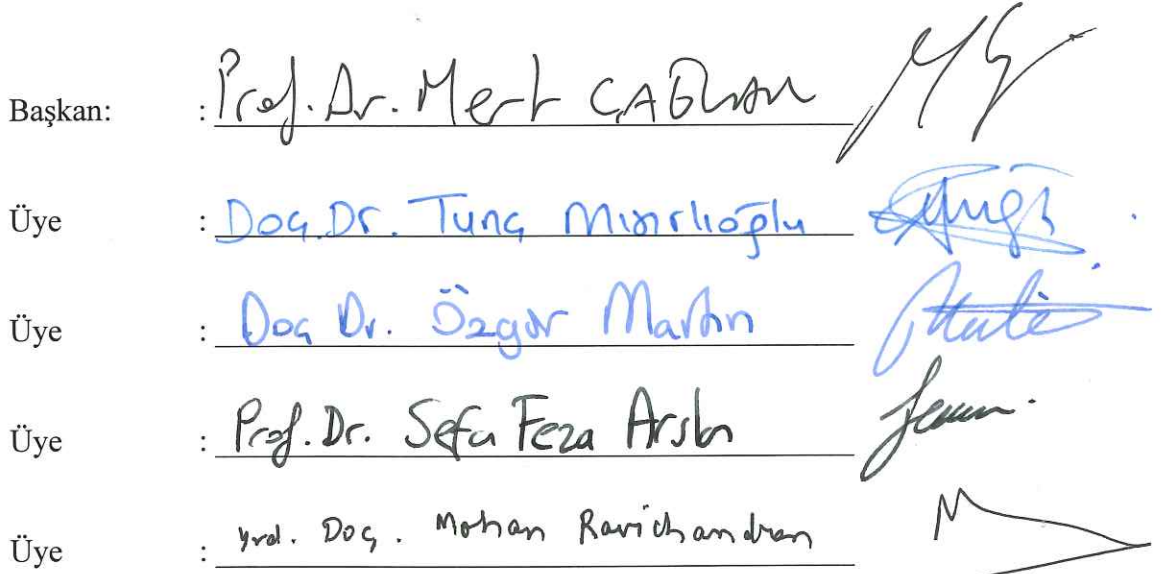 Başkan: : Prof. Dr. Mert ÇAĞLAR
Üye : Doç. Dr. Tunç Mısırlıoğlu
Üye : Doç Dr. Özgür Martin
Üye : Prof. Dr. Sefa Feza Arslan
Üye : Yrd. Doç. Mohan Ravichandran